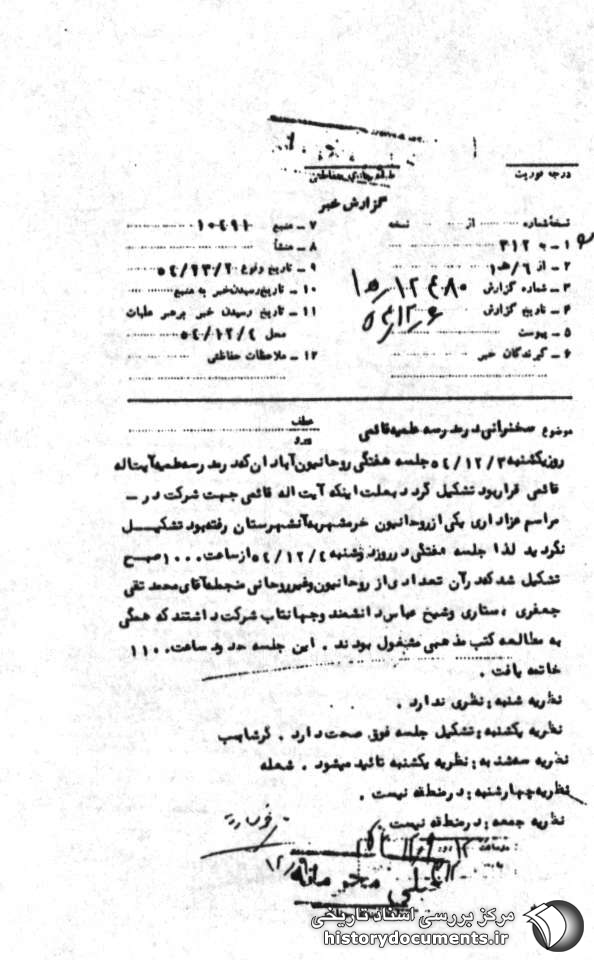 درجه فوریت
طبقه بندی حفاظتی
گزارش خبر
نسخه شماره از نسخه
۱ ـ به ۳۱۲
۲ ـ از ۶/هـ۱
۳ ـ شماره گزارش ۱۲۴۸۰
۴ ـ تاریخ گزارش
۵ ـ پیوست
۶ ـ گیرندگان خبر
۷ ـ منبع ۱۰۴۹۱
۸ ـ منشأ
۹ ـ تاریخ وقوع
۱۰ ـ تاریخ رسیدن خبر به منبع
۱۱ ـ تاریخ رسیدن خبر برهبر عملیات
محل ۵۴/۱۲/۴
۱۲ ـ ملاحظات حفاظتی
موضوع سخنرانی در مدرسه علمیه قائمی
عطف
روز یکشنبه ۵۴/۱۲/۳ جلسه هفتگی روحانیون آبادان که در مدرسه علمیه آیت اله
قائمی قرار بود تشکیل گردد بعلت اینکه آیت اله قائمی جهت شرکت در ـ
مراسم عزاداری یکی از روحانیون خرمشهر به آن شهرستان رفته بود تشکیل
نگردید لذا جلسه هفتگی در روز دوشنبه ۵۴/۱۲/۴ از ساعت ۱۰۰۰ صبح
تشکیل شد که در آن تعدادی از روحانیون و غیر روحانی منجمله آقای محمد تقی
جعفری ، ستاری و شیخ عباس دانشمند و جهانتاب شرکت داشتند که همگی
به مطالعه کتب مذهبی مشغول بودند . این جلسه حدود ساعت
خاتمه یافت .
نظریه شنبه : نظری ندارد .
نظریه یکشنبه : تشکیل جلسه فوق صحت دارد . گرشاسب
نظریه سه شنبه : نظریه یکشنبه تائید میشود . شعله
نظریه چهارشنبه : در منطقه نیست .
نظریه جمعه : در منطقه نیست
خیلی محرمانه
مرکز بررسی اسناد تاریخی
historydocuments.ir